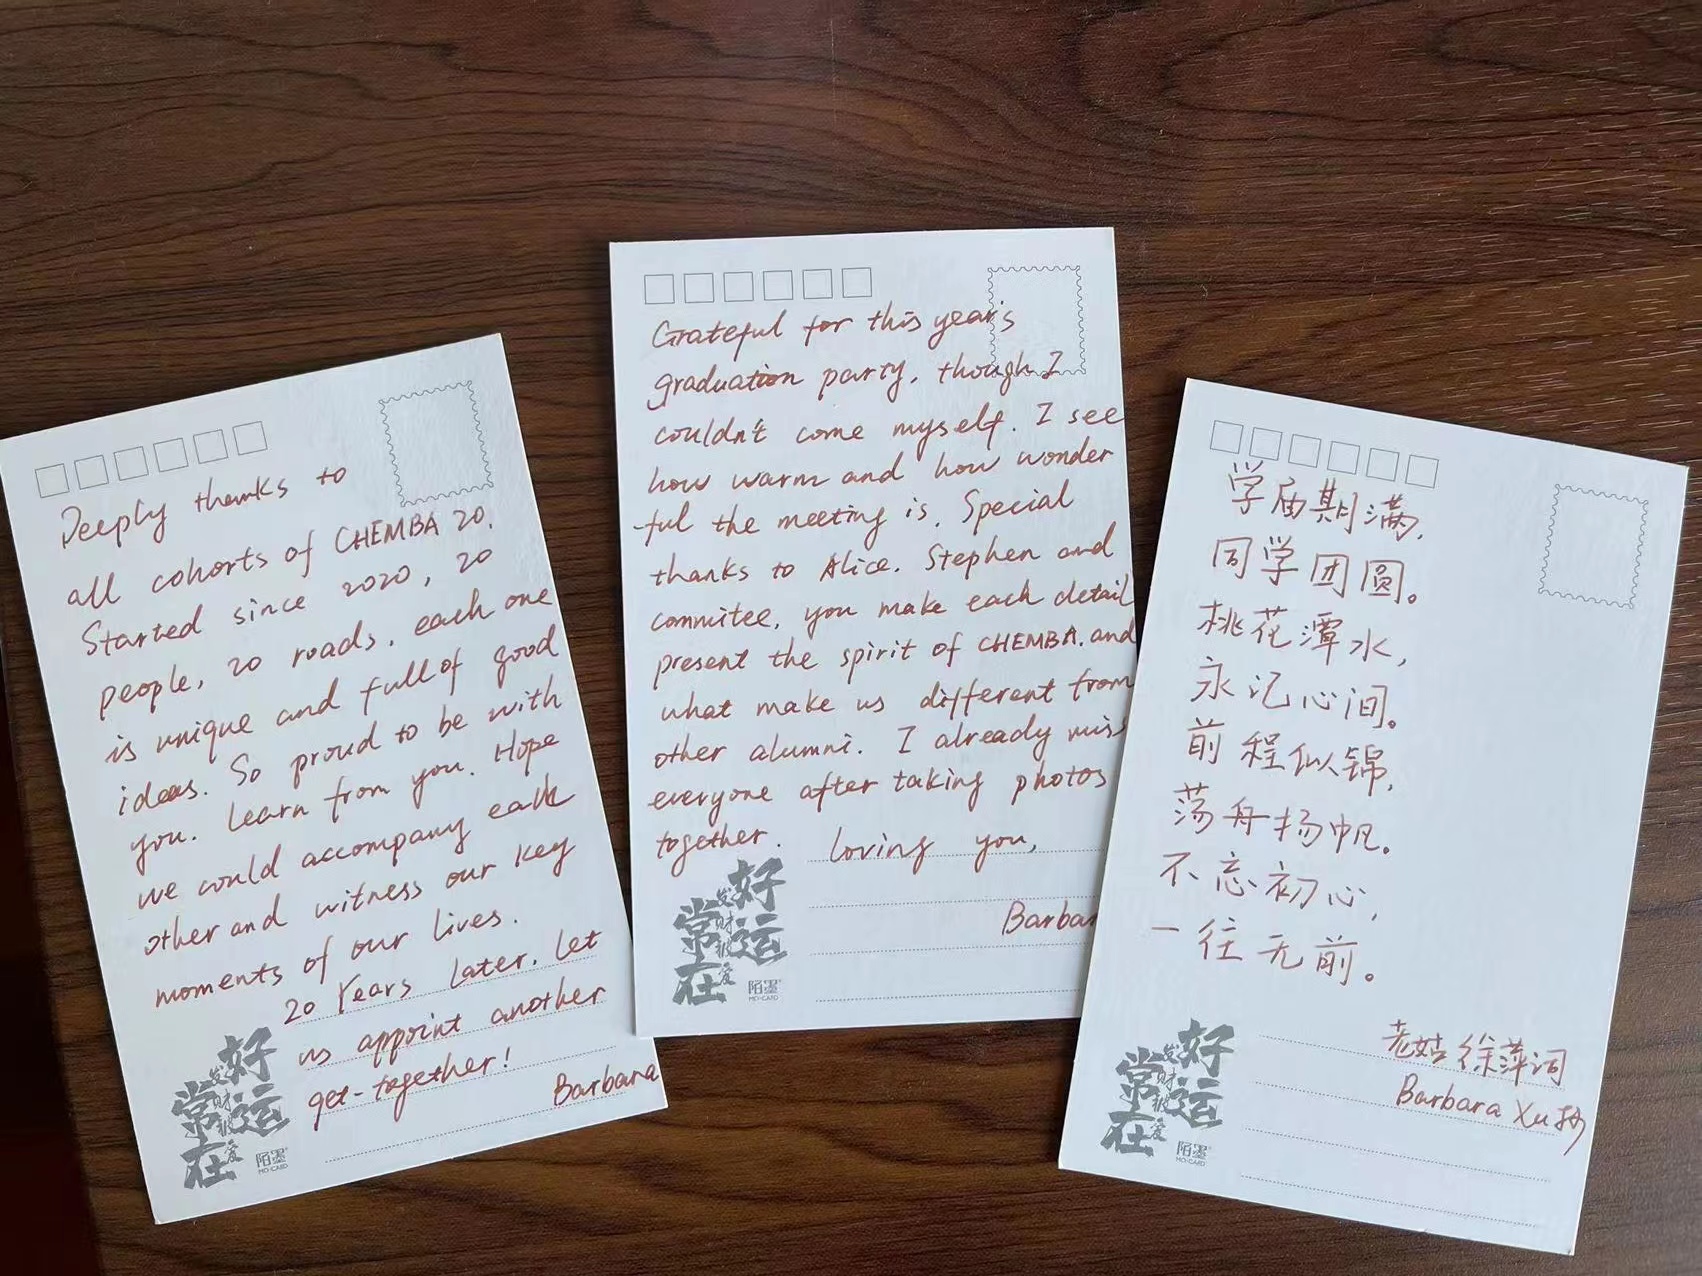 Deeply thanks to
all cohorts of CHEMBA 20.
Started since 2020, 20
people, 20 roads, each one
is unique and full of good
ideas. So proud to be with
you. Learn from you. Hope
we could accompany each
other and witness our key
moments of our lives.
20 Years Later. Let
us appoint another
get-together!
Barbara
好运
常在
发财被爱
陌墨
MO-CARD
Grateful for this year's
graduation party, though I
couldn't come myself. I see
how warm and how wonder
-ful the meeting is. Special
thanks to Alice. Stephen and
commitee, you make each detail
present the spirit of CHEMBA. and
what make us different from
other alumni. I already miss
everyone after taking photos
together. Loving you,
Barbar
好运
常在
发财被爱
陌墨
MO-CARD
学届期满,
同学团圆。
桃花潭水,
永记心间。
前程似锦,
荡舟扬帆。
不忘初心,
一往无前。
徐萍词
Barbara Xu
好运
常在
发财被爱
陌墨
MO-CARD